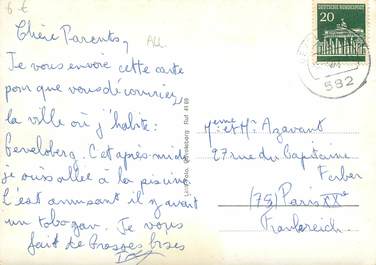 6 €
Chère Parents,
Je vous envoie cette carte
pour que vous découvriez
la ville où j'habite:
Gevelsberg. Cet après-midi
je suis allée à la piscine
C'est amusant il y avait
un tobogan. Je vous
fait de Grosses bises
All.
20
DEUTSCHE BUNDESPOST
582
Mme et Mr Azavant
27 rue du Capitaine
Ferber
(75) Paris XXe
Frankreich